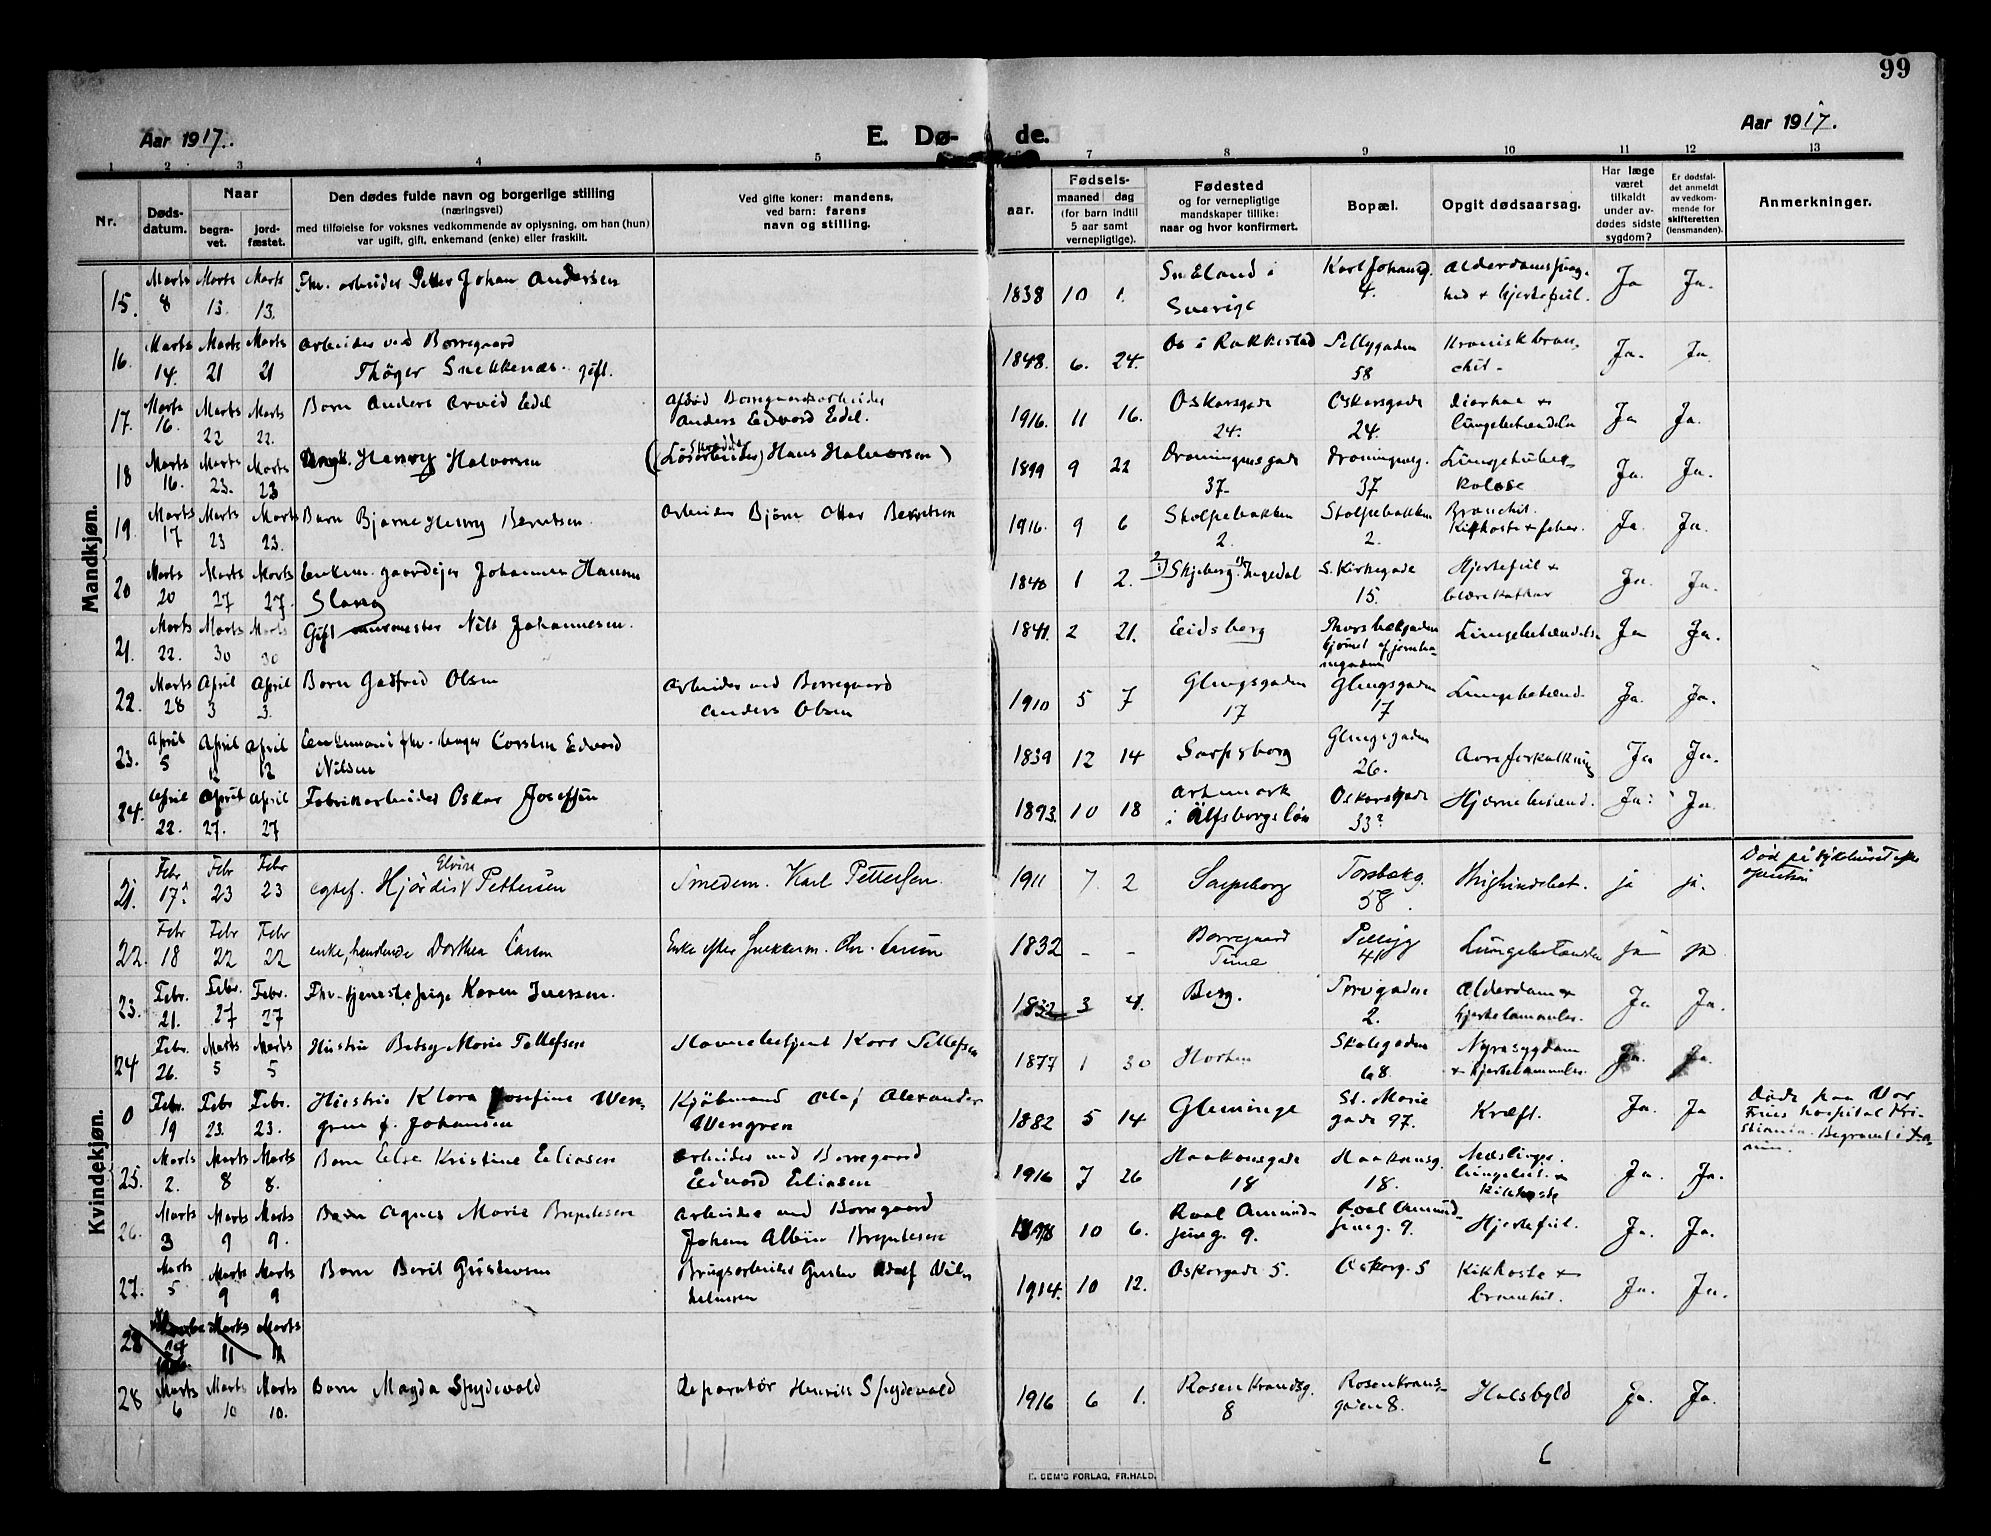 99
Aar 1917.
E. Dø- de.
Aar 1917.
1 2 3 4 5 7 8 9 10 11 12 13
Nr.
Døds-
datum.
Naar
begra-
vet.
jord-
fæstet.
Den dødes fulde navn og borgerlige stilling
(næringsvei)
med tilføielse for voksnes vedkommende av oplysning, om han (hun)
var ugift, gift, enkemand (enke) eller fraskilt.
Ved gifte koner: mandens,
ved barn: farens
navn og stilling.
aar.
Fødsels-
maaned dag
(for barn indtil
5 aar samt
vernepligtige).
Fødested
og for vernepligtige
mandskaper tillike:
naar og hvor konfirmert.
Bopæl.
Opgit dødsaarsag.
Har læge
været
tilkaldt
under av-
dødes sidste
sygdom?
Er dødsfal-
det anmeldt
av vedkom-
mende for
skifteretten
(lensmanden).
Anmerkninger.
Mandkjøn.
15. Marts 8 Marts 13. Marts 13. Fhv. arbeider Petter Johan Andersen 1838 10 1. Småland i Sverige Karl Johansg. 4. Alderdomssvag- hed + hjertefeil. Ja Ja.
16. Marts 14. Marts 21 Marts 21 Arbeider ved Borregaard
Thøger Snekkenæs. gift. 1848. 6. 24. Os i Rakkestad Pellygaden 58 Kronisk bron- chit. Ja. Ja.
17. Marts 16. Marts 22 Marts 22. Barn Anders Arvid Edel Afdød Borregaardsarbeider
Anders Edvard Edel. 1916. 11 16. Oskarsgade 24. Oskarsgade 24. Diarhae + Lungebetændelse Ja Ja.
18 Marts 16. Marts 23. Marts 23 Ungk. Henry Halvorsen (Løsarbeider) Hans Halvorsen) 1899 9 22 Droningensgade 37. Droningensg. 37 Lungetuber- kolose Ja. Ja.
19. Marts 17 Marts 23 Marts 23. Barn Bjarne Henry Berntsen. Arbeider Bjørn Ottar Berntsen 1916. 9 6 Stolpebakken 2. Stolpebakken 2. Bronchit. Kikhoste + feber. Ja. Ja.
20 Marts 20 Marts 27 Marts 27. Enkem. gaardejer Johannes Hansen
Slang 1840 1 2. Skjeberg Ingedal S. Kirkegade 15. Hjertefeil + blærekathar Ja. Ja.
21. Marts 22. Marts 30 Marts 30 Gift murmester Nils Johannesen. 1841. 2 21. Eidsberg Thorsbækgaden hjørnet af Lungebetændelse Ja Ja.
22. Marts 28 April 3 April 3. Barn Gadfred Olsen Arbeider ved Borregaard
Anders Olsen 1910 5 7 Glengsgaden 17 Glengsgaden 17 Lungebetænd. Ja. Ja.
23. April 5 April 12 April 12 Enkemand fhv. Carsten Edvard
Nilsen 1839 12 14 Sarpsborg Glengsgaden 26. Aareforkalkning Ja Ja.
24. April 22. April 27. April 27 Fabrikarbeider Oskar Josefsen 1893. 10 18 Artemark i Älfsborgslän Oskarsgade 33? Hjernebetænd. Ja. Ja.
Kvindekjøn.
21. Febr 17. Febr 23 Febr 23 Hjördis Elvira Pettersen Smedem. Karl Pettersen. 1911 7. 2 Sarpsborg Torsbækg. 58. ja ja. Død på sykehuset efter
operation
22. Febr 18 Febr 22 Febr 22 enke, handlende Dorthea Larsen Enke efter Snekkerm. Chr. Larsen 1832 - - Borregaard Tune Pellyg 41 Lungebetændelse ja ja
23. Febr. 21. Febr. 27 Febr. 27 Fhv. tjenestepige Karen Iversen. 1832 3 4. Berg. Torvgaden 2. Alderdom + hjertelammelse. Ja Ja.
24 Febr. 26. Marts 5 Marts 5 Hustru Betsy Marie Tellefsen Havnebetjent Karl Tellefsen 1877 1 30 Horten Skolegaden 68. Nyresygdom + hjertelammelse. Ja. Ja.
0 Febr. 19 Febr. 23. Febr. 23. Hustru Klara Josefine Wen-
gren f. Johansen Kjøbmand Olaf Alexander
Wengren 1882 5 14 Glemminge St. Marie gade 97. Kræft. Ja. Ja Døde paa Vor
Frues hospital Kri-
stiania. Begravet i
25. Marts 2. Marts 8 Marts 8. Barn Else Kristine Eliasen Arbeider ved Borregaard
Edvard Eliasen 1916 7 26 Haakonsgade 18 Haakonsg. 18. Mæslinger. Lungebet. + kikhoste Ja. Ja.
26. Marts 3 Marts 9 Marts 9. Barn Agnes Marie Bryntesen Arbeider ved Borregaard
Johan Albin Bryntesen 10 6. Roal Amund- seng. 9. Roal Amund- seng. 9. Hjertefeil. Ja. Ja.
27. Marts 5 Marts 9 Marts 9 Barn Beril Gustavsen Brugsarbeider Gustav Adolf Vil-
helmsen 1914. 10 12. Oskarsgade 5. Oskarsg. 5 Kikhoste + bronchit. Ja. Ja.
28 Marts 11 Marts 11
28 Marts 6 Marts 10 Marts 10. Barn Magda Spydevold Reparatør Henrik Spydevold 1916 6 1. Rosenkrandsg. 8 Rosenkrans- gaden 8. Halsbyld Ja. Ja.
E. SEM'S FORLAG, FR.HALD.